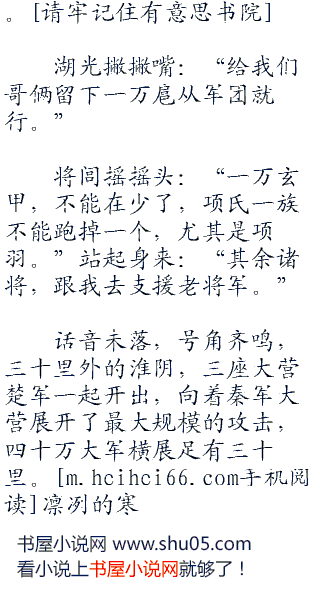 。[请牢记住有意思书院]
湖光撇撇嘴：“给我们
哥俩留下一万扈从军团就
行。”
将闾摇摇头：“一万玄
甲，不能在少了，项氏一族
不能跑掉一个，尤其是项
羽。”站起身来：“其余诸
将，跟我去支援老将军。”
话音未落，号角齐鸣，
三十里外的淮阴，三座大营
楚军一起开出，向着秦军大
营展开了最大规模的攻击，
四十万大军横展足有三十
里。[m.hcihci66.com手机阅
读]凛冽的寒
书屋小说网 www.shu05.com
看小说上书屋小说网就够了！